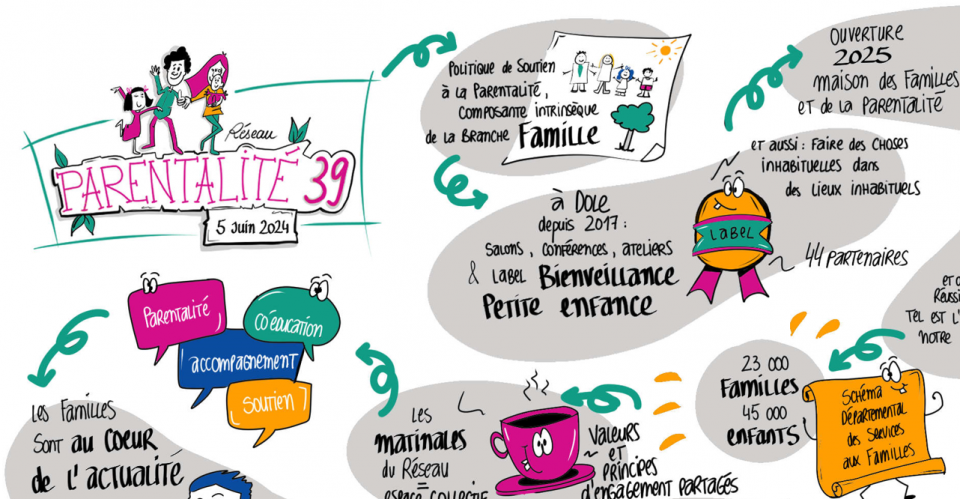 Réseau
PARENTALITÉ 39
5 Juin 2024
POLITIQUE de SOUTIEN
à LA PARENTALITÉ,
COMPOSANTE INTRINSÈQUE
DE LA BRANCHE FAMILLE
OUVERTURE
2025
MAISON DES FAMILLES
ET DE LA PARENTALITÉ
ET AUSSI : FAIRE DES CHOSES
INHABITUELLES DANS
DES LIEUX INHABITUELS
à DOLE
depuis 2017 :
SALONS, CONFÉRENCES, ATELIERS
& LABEL BIENVEILLANCE
PETITE ENFANCE
LABEL
44 PARTENAIRES
PARENTALITÉ
CO-ÉDUCATION
ACCOMPAGNEMENT
SOUTIEN
LES FAMILLES
SONT AU COEUR
DE L'ACTUALITÉ
LES
MATINALES
DU RÉSEAU
=
ESPACE COLLECTIF
VALEURS
ET
PRINCIPES
D'ENGAGEMENT PARTAGÉS
23 000
FAMILLES
45 000
ENFANTS
SCHÉMA
DÉPARTEMENTAL
DES SERVICES
AUX FAMILLES
TEL EST L'
NOTRE